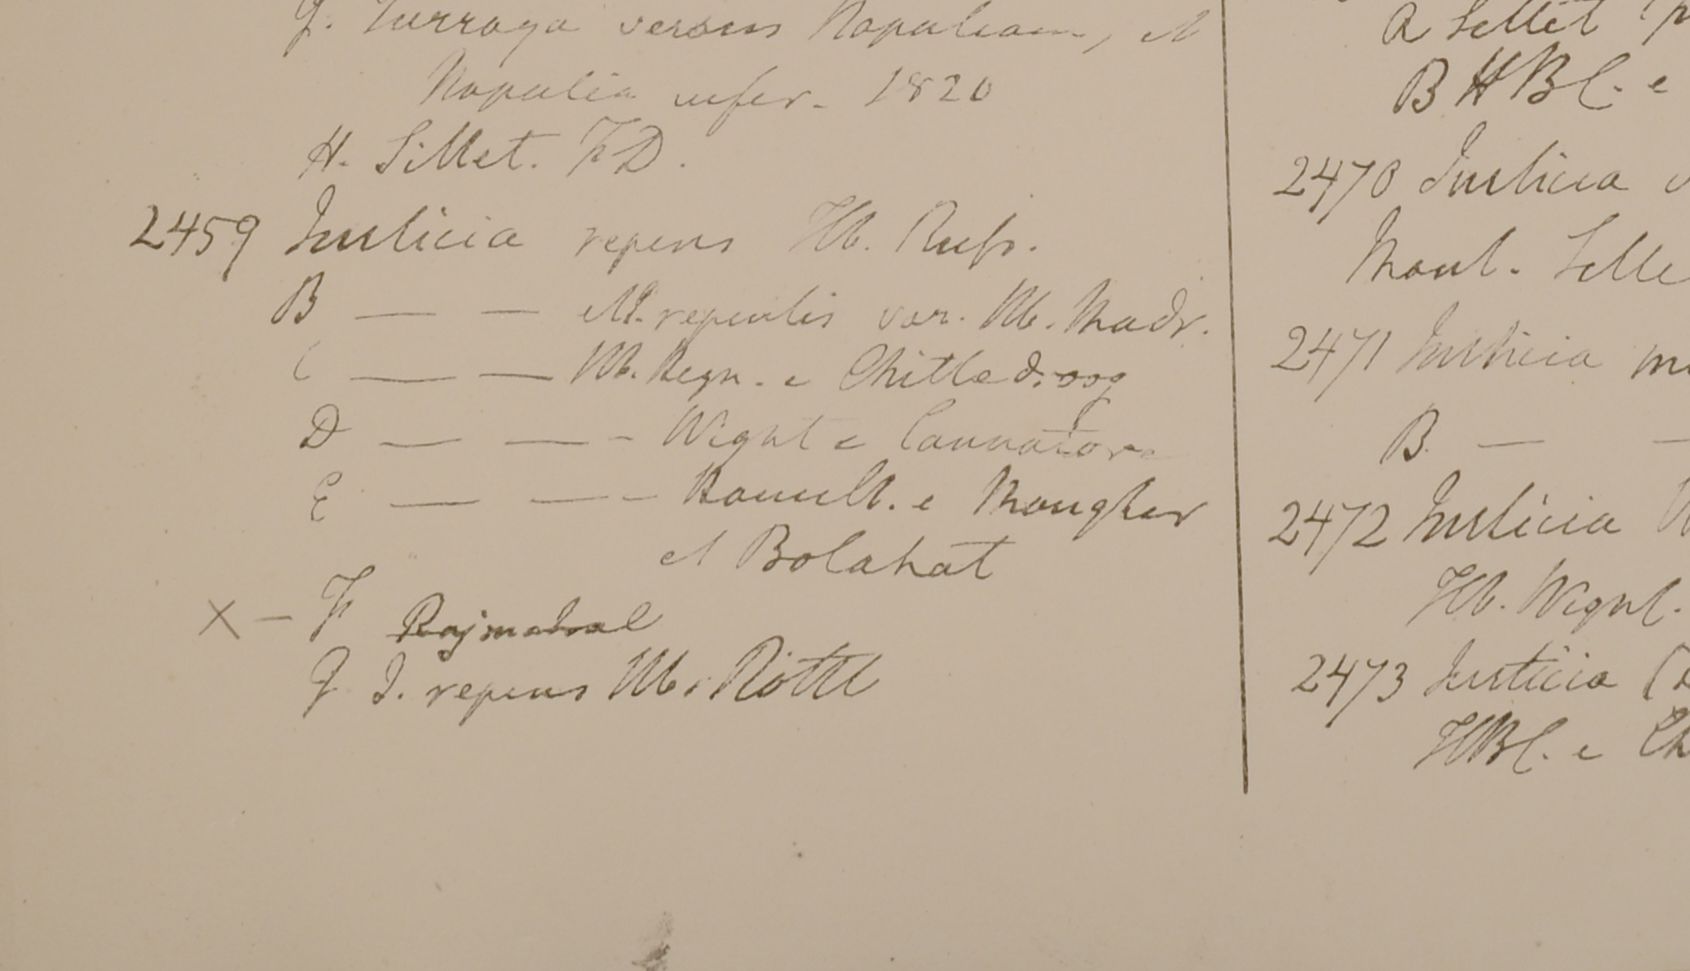 G. Turraya versus Napaliam, et
Napalia infer. 1820
H. Sillet. FD.
2459 Justicia repens Hb. Russ.
B — — repentis var. Hb. Madr.
C — — Hb. Heyn. e Chittledroog
D — — - Wight e
E — — - Hamilt. e Mongher
et Bolahat
X - F Rajmahal
G J. repens Hb. Rottl
R Sillet
B HBC. e
2470 Justicia
Mont. Sille
2471 Justicia
B. — —
2472 Justicia
Hb. Wight.
2473 Justicia
HBC. e Ch